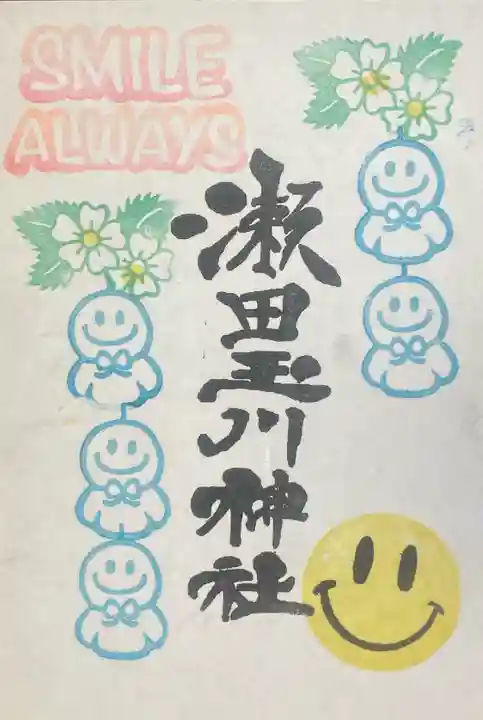 SMILE
ALWAYS
瀬田玉川神社